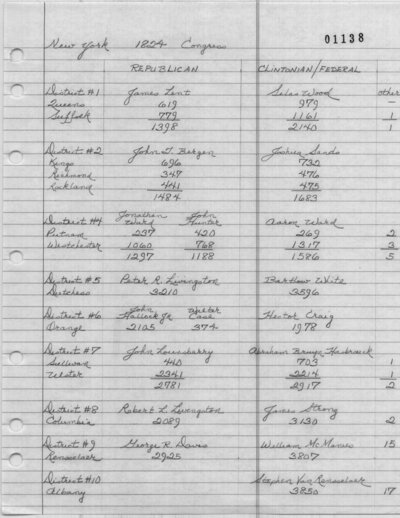 01138
New York 1824 Congress
REPUBLICAN CLINTONIAN/FEDERAL
District #1 James Lent Silas Wood other
Queens 619 979 —
Suffolk 779 1161 1
1398 2140 1
District #2 John T. Bergen Joshua Sands
Kings 696 732
Richmond 347 476
Rockland 441 475
1484 1683
District #4 Jonathan Ward John Hunter Aaron Ward
Putnam 237 420 269 2
Westchester 1060 768 1317 3
1297 1188 1586 5
District #5 Peter R. Livingston Bartlow White
Dutchess 3210 3596
District #6 John Hallock Jr. Walter Case Hector Craig
Orange 2105 374 1978
District #7 John Lounsbarry Abraham Bruyn Hasbrouck
Sullivan 440 703 1
Ulster 2341 2214 1
2781 2917 2
District #8 Robert L. Livingston James Strong
Columbia 2089 3130 2
District #9 George R. Davis William McManus 15
Rensselaer 2925 3807
District #10 Stephen Van Rensselaer
Albany 3850 17